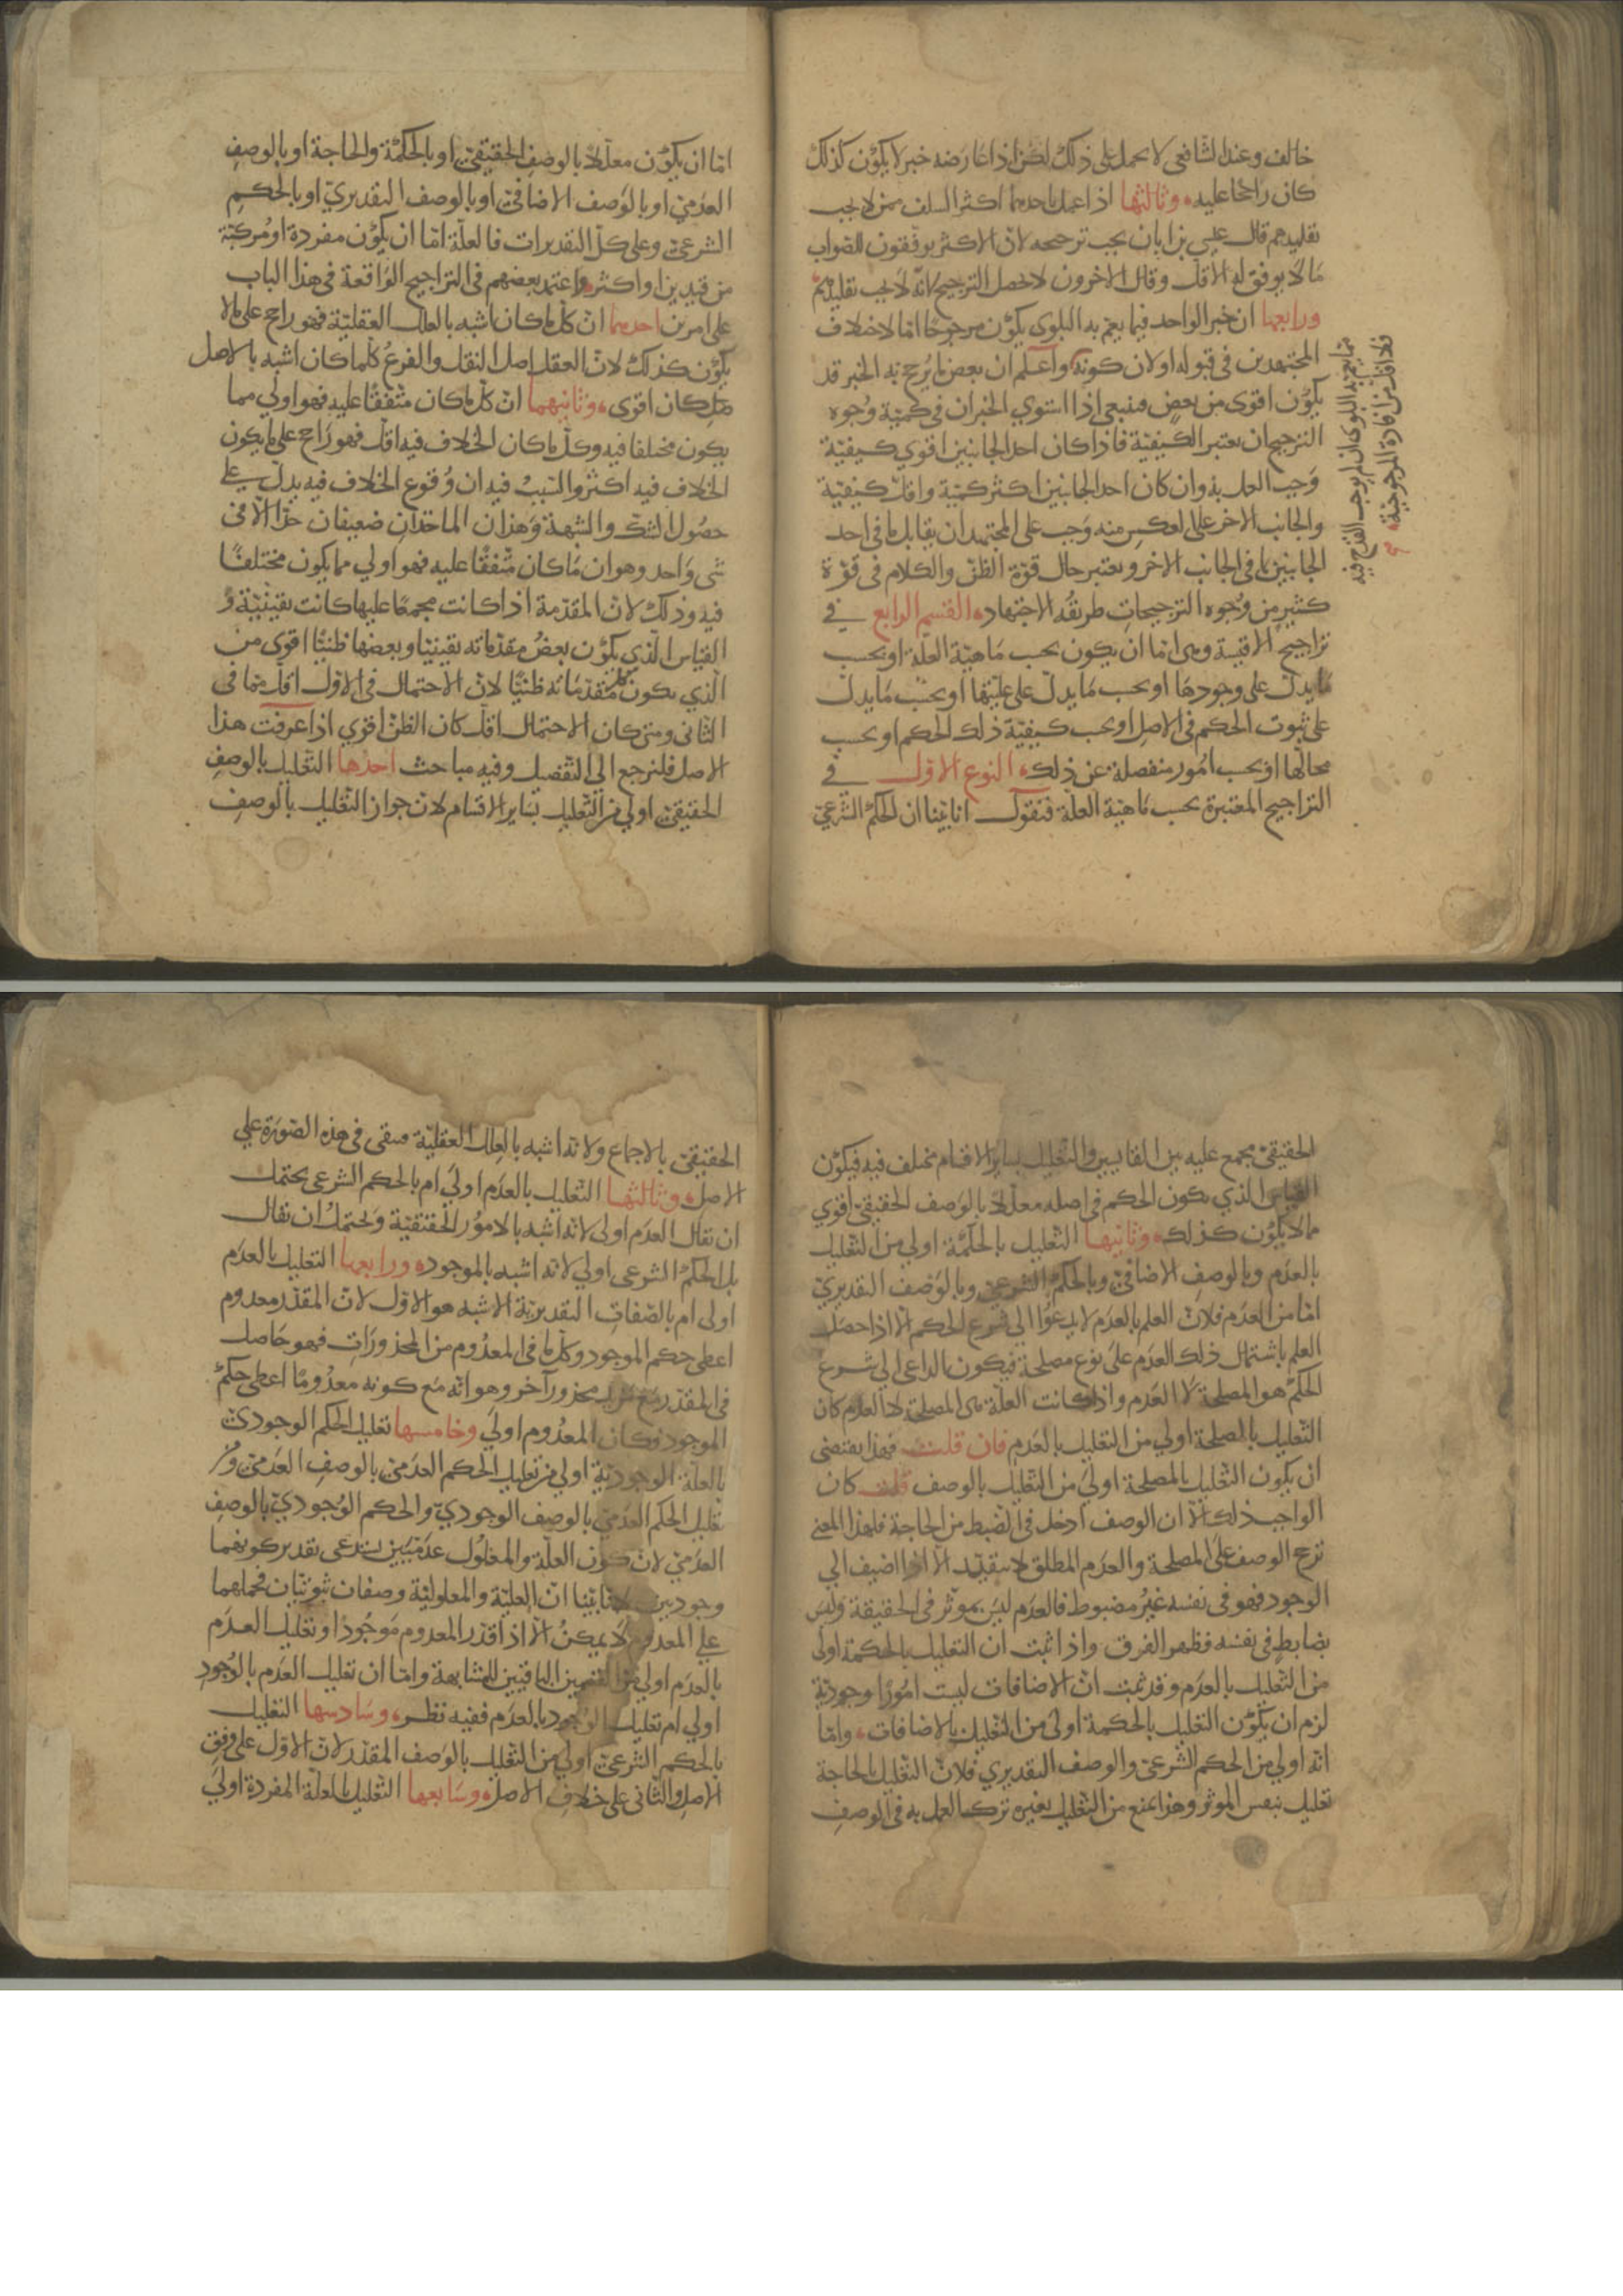 خالف وعند الشافعي لا يحمل على ذلك لكن اذا عارضه خبر لا يكون كذلك
كان راجحا عليه وثالثها اذا عمل باحدهما اكثر السلف ممن لا يجب
تقليدهم قال عيسى بن ابان يجب ترجيحه لان الاكثر يوفقون للصواب
ما لا يوفق له الاقل وقال الاخرون لا يحصل الترجيح لانه لا يجب تقليدهم
ورابعها ان خبر الواحد فيما يعم به البلوى يكون مرجوحا اما لاختلاف
المجتهدين في قبوله او لان كونه واعلم ان بعض ما يرجح به الخبر قد
يكون اقوى من بعض فينبغي اذا استوى الخبران في كمية وجوه
الترجيح ان يعتبر الكيفية فاذا كان احد الجانبين اقوى كيفية
وجب العمل به وان كان احد الجانبين اكثر كمية واقل كيفية
والجانب الاخر على العكس منه وجب على المجتهد ان يقابل ما في احد
الجانبين بما في الجانب الاخر ويعتبر حال قوة الظن والكلام في قوة
كثير من وجوه الترجيحات طريقه الاجتهاد القسم الرابع في
تراجيح الاقيسة وهي اما ان يكون بحسب ماهية العلة او بحسب
ما يدل على وجودها او بحسب ما يدل على عليتها او بحسب ما يدل
على ثبوت الحكم في الاصل او بحسب كيفية ذلك الحكم او بحسب
محالها او بحسب امور منفصلة عن ذلك النوع الاول في
التراجيح المعتبرة بحسب ماهية العلة فنقول انا بينا ان الحكم الشرعي
مما يعم به البلوى ان لم يوجب القدح فيه
فلا اقل من افادة المرجوحية
اما ان يكون معللا بالوصف الحقيقي او بالحكمة والحاجة او بالوصف
العدمي او بالوصف الاضافي او بالوصف التقديري او بالحكم
الشرعي وعلى كل التقديرات فالعلة اما ان يكون مفردة او مركبة
من قيدين او اكثر واعتمد بعضهم في التراجيح الواقعة في هذا الباب
على امرين احدهما ان كل ما كان اشبه بالعلل العقلية فهو راجح على ما لا
يكون كذلك لان العقل اصل النقل والفرع كلما كان اشبه بالاصل
كان اقوى وثانيهما ان كل ما كان متفقا عليه فهو اولى مما
يكون مختلفا فيه وكل ما كان الخلاف فيه اقل فهو راجح على ما يكون
الخلاف فيه اكثر والسبب فيه ان وقوع الخلاف فيه يدل على
حصول الشك والشبهة وهذان الماخذان ضعيفان جدا الا في
شي واحد وهو ان ما كان متفقا عليه فهو اولى مما يكون مختلفا
فيه وذلك لان المقدمة اذا كانت مجمعا عليها كانت يقينية و
القياس الذي يكون بعض مقدماته يقينيا وبعضها ظنيا اقوى من
الذي يكون كل مقدماته ظنيا لان الاحتمال في الاول اقل مما في
الثاني ومتى كان الاحتمال اقل كان الظن اقوي اذا عرفت هذا
الاصل فلنرجع الى التفصيل وفيه مباحث احدها التعليل بالوصف
الحقيقي اولى من التعليل بساير الاقسام لان جواز التعليل بالوصف
الحقيقي مجمع عليه بين القايسين والتعليل بساير الاقسام مختلف فيه فيكون
القياس الذي يكون الحكم في اصله معللا بالوصف الحقيقي اقوي
مما لا يكون كذلك وثانيها التعليل بالحكمة اولي من التعليل
بالعدم وبالوصف الاضافي وبالحكم الشرعي وبالوصف التقديري
اما من العدم فلان العلم بالعدم لا يدعوا الى شرع الحكم الا اذا حصل
العلم باشتمال ذلك العدم على نوع مصلحة فيكون الداعي الى شرع
الحكم هو المصلحة لا العدم واذا كانت العلة هي المصلحة لا العدم كان
التعليل بالمصلحة اولي من التعليل بالعدم فان قلت فهذا يقتضي
ان يكون التعليل بالمصلحة اولى من التعليل بالوصف قلت كان
الواجب ذلك الا ان الوصف ادخل في الضبط من الحاجة فلهذا المعنى
ترجح الوصف على المصلحة والعدم المطلق لا يتقيد الا اذا اضيف الى
الوجود فهو في نفسه غير مضبوط فالعدم ليس بموثر في الحقيقة وليس
بضابط في نفسه فظهر الفرق واذا ثبت ان التعليل بالحكمة اولى
من التعليل بالعدم وقد ثبت ان الاضافات ليست امورا وجودية
لزم ان يكون التعليل بالحكمة اولى من التعليل بالاضافات واما
انه اولي من الحكم الشرعي والوصف التقديري فلان التعليل بالحاجة
تعليل بنفس الموثر وهذا يمنع من التعليل بغيره ترك العمل به في الوصف
الحقيقي بالاجماع ولانه اشبه بالعلل العقلية فيبقى في هذه الصورة علي
الاصل وثالثها التعليل بالعدم اولى ام بالحكم الشرعي يحتمل
ان يقال العدم اولى لانه اشبه بالامور الحقيقية ويحتمل ان يقال
بل الحكم الشرعي اولي لانه اشبه بالموجود ورابعها التعليل بالعدم
اولى ام بالصفات التقديرية الاشبه هو الاول لان المقدر معدوم
اعطي حكم الموجود وكل ما في المعدوم من المحذورات فهو حاصل
في المقدر مع مزيد محذور آخر وهو انه مع كونه معدوما اعطى حكم
الموجود فكان المعدوم اولي وخامسها تعليل الحكم الوجودي
بالعلة الوجودية اولي من تعليل الحكم العدمي بالوصف العدمي ومن
تعليل الحكم العدمي بالوصف الوجودي والحكم الوجودي بالوصف
العدمي لان كون العلة والمعلول عدميين يستدعي تقدير كونهما
وجوديين لانا بينا ان العلية والمعلولية وصفان ثبوتيان فحملهما
علي المعدوم لا يمكن الا اذا قدر المعدوم موجودا وتعليل العدم
بالعدم اولي من القسمين الباقيين للمشابهة واما ان تعليل العدم بالوجود
اولي ام تعليل الوجود بالعدم ففيه نظر وسادسها التعليل
بالحكم الشرعي اولي من التعليل بالوصف المقدر لان الاول على وفق
الاصل والثاني على خلاف الاصل وسابعها التعليل بالعلة المفردة اولي